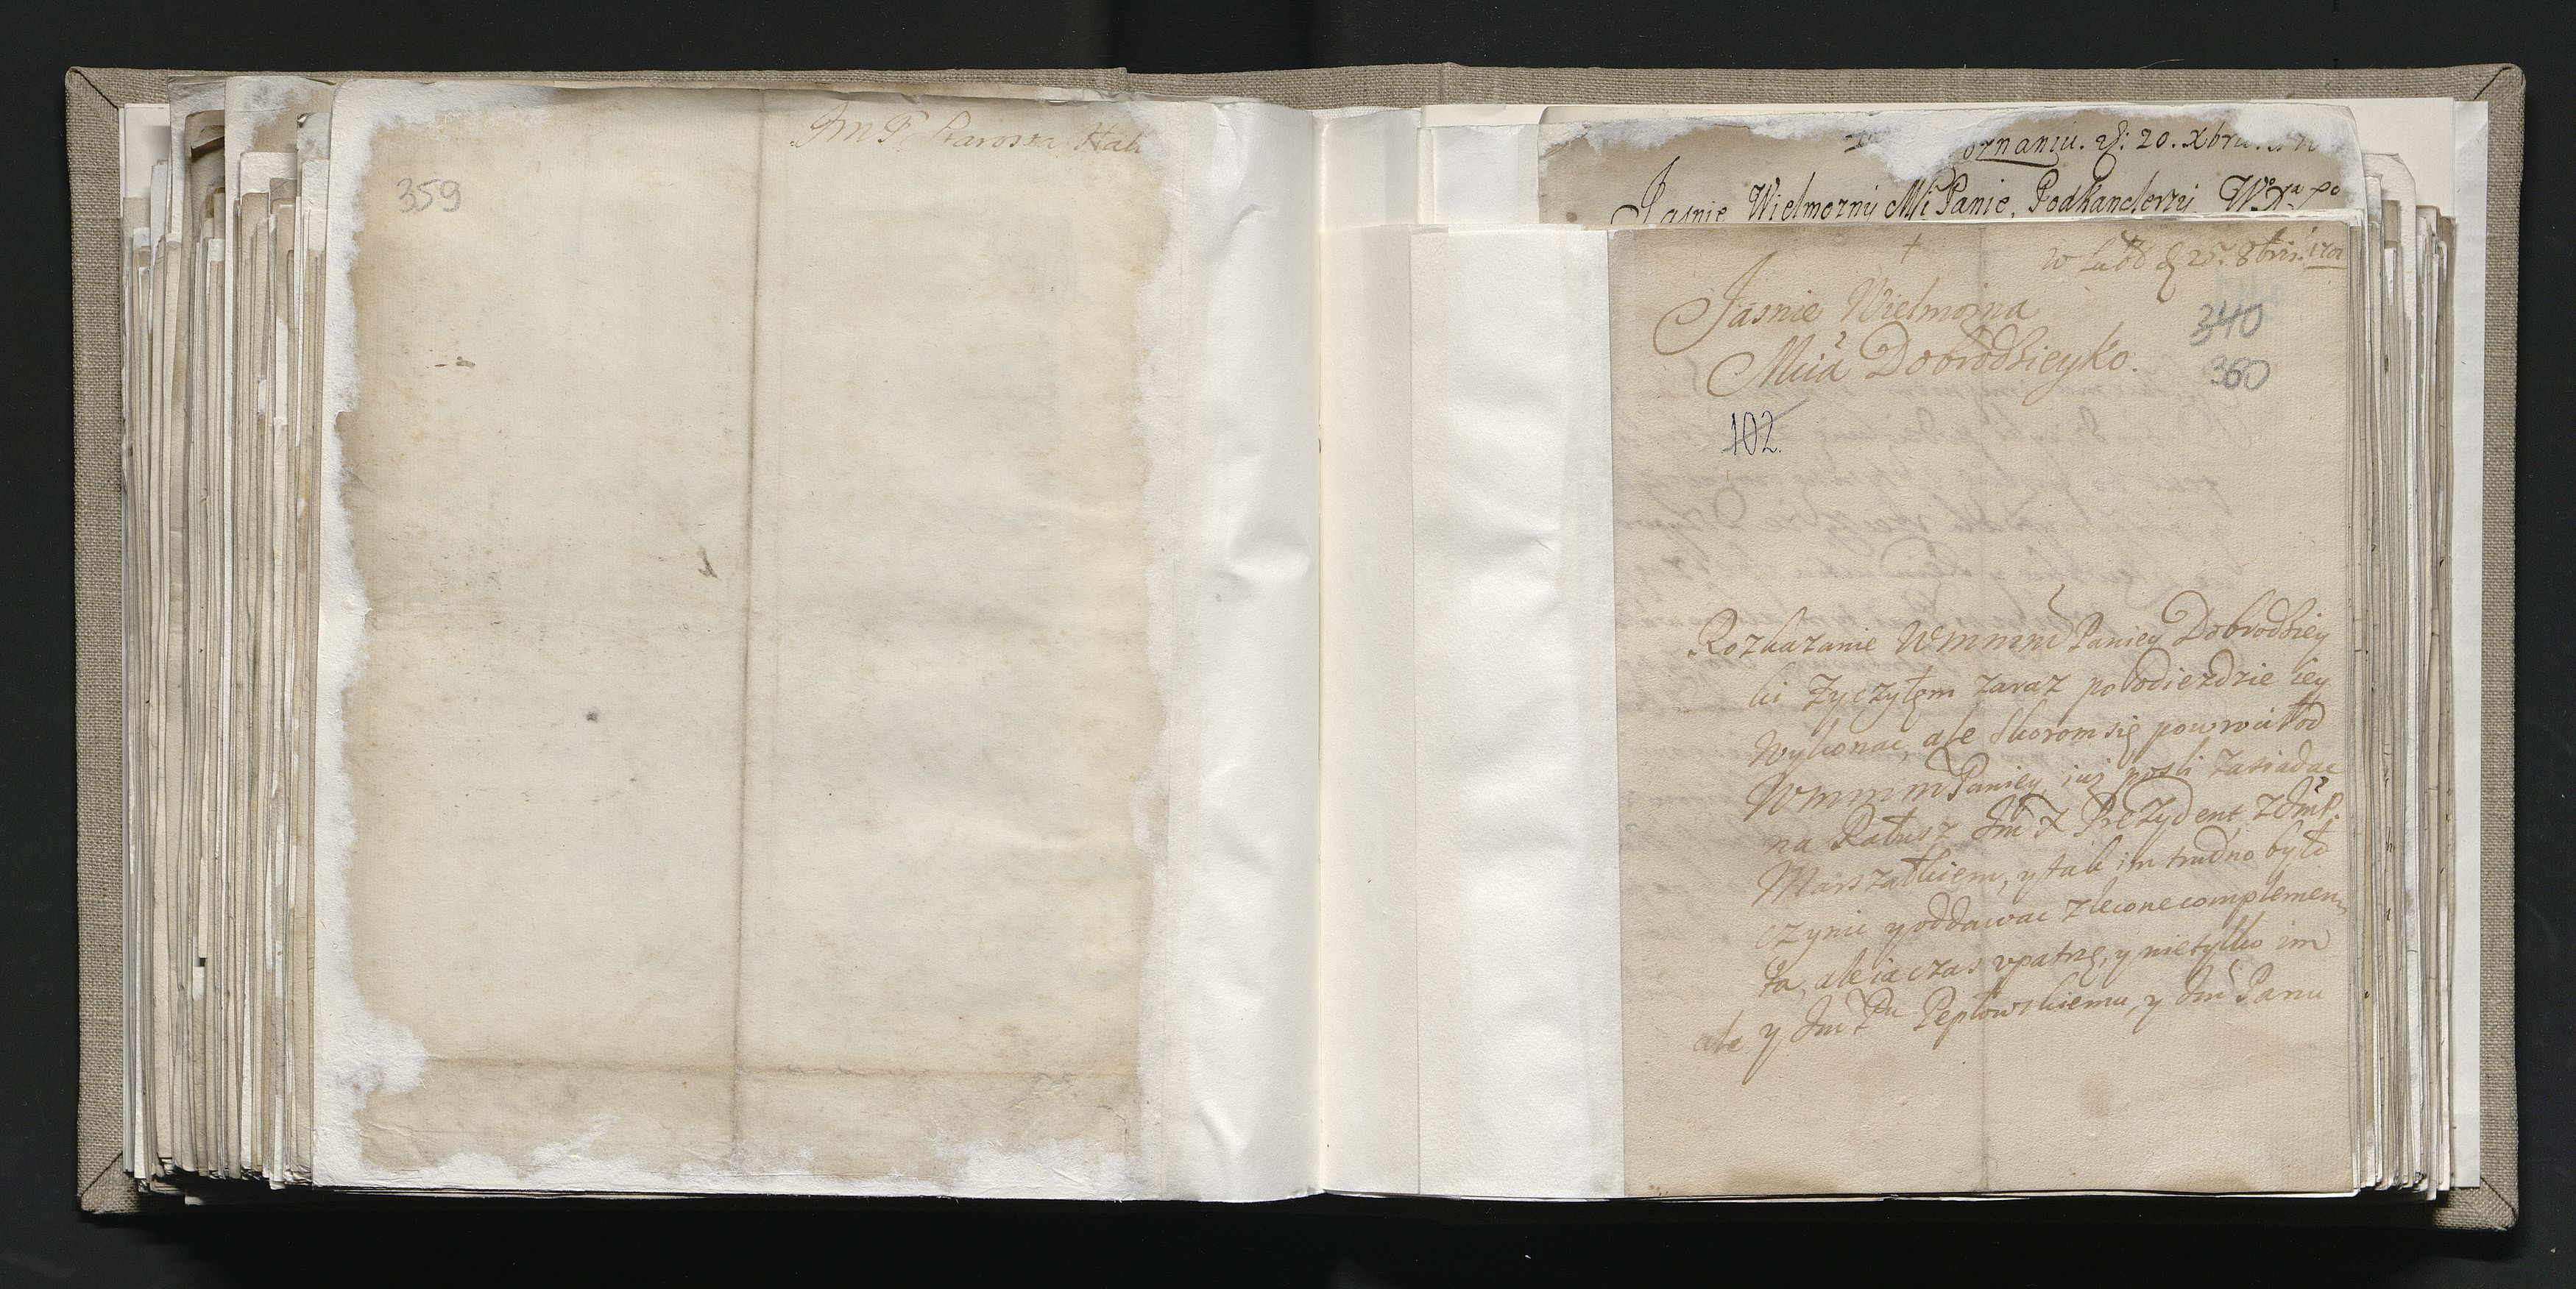 Jm P. Starosta Hali
359
oznaniu. d: 20. Xbris
Jasnie Wielmozny Mći Panie, Podkanclerzy W° Xa
+
w Lubl d 25. 8bris. 1701
Jasnie Wielmozna
Mcia Dobrodzieyko.
340
360
102.
Rozkazanie Wmmm Paniey Dobrodziey
ki zyczyłęm zaraz po odiezdzie iey
wykonac, ale skorom się powrocił od
Wmmm Paniey, iuż posli zasiadac
na Ratusz Jm X Prezydent z Jm P.
Marszałkiem, y tak im trudno było
czynic y oddawac zlecone complemen
ta, ale ia czas upatrzę, y nie tylko im
ale y Jm Pu Pepłowskiemu, y Jm Panu